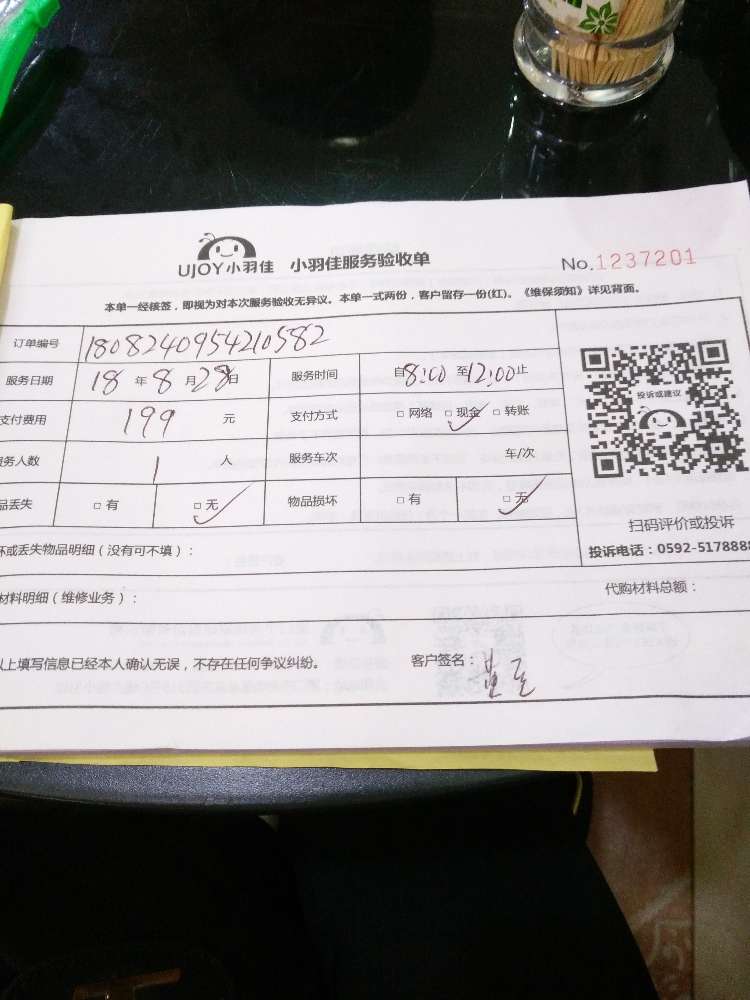 UJOY小羽佳 小羽佳服务验收单 No.1237201
本单一经核签，即视为对本次服务验收无异议。本单一式两份，客户留存一份(红)。《维保须知》详见背面。
订单编号 1808240954210582
服务日期 18年8月28日 服务时间 自8:00至12:00止
支付费用 199 元 支付方式 □网络 □现金 □转账
务人数 1 人 服务车次 车/次
品丢失 □有 □无 物品损坏 □有 □无
投诉或建议
扫码评价或投诉
投诉电话：0592-5178888
坏或丢失物品明细（没有可不填）：
材料明细（维修业务）： 代购材料总额：
以上填写信息已经本人确认无误，不存在任何争议纠纷。 客户签名：